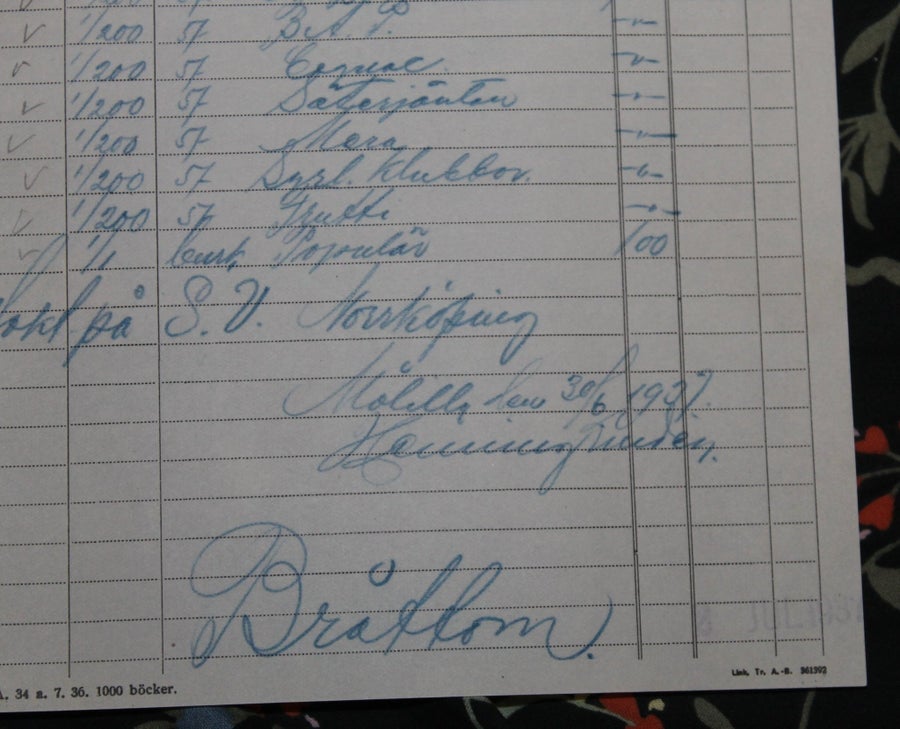 1/200 57 B.A.P. -"-
1/200 57 Cognac -"-
1/200 57 Säterjäntan -"-
1/200 57 Mara -"-
1/200 57 Syrl. Klubbor. -"-
1/200 57 Frutti -"-
1/1 burk Populär 1/00
på S. V. Norrköping
Målilla den 30/6 1937.
Henning
Bråttom.
JUL. 1937
A. 34 a. 7. 36. 1000 böcker.
Link. Tr. A.-B. 361992